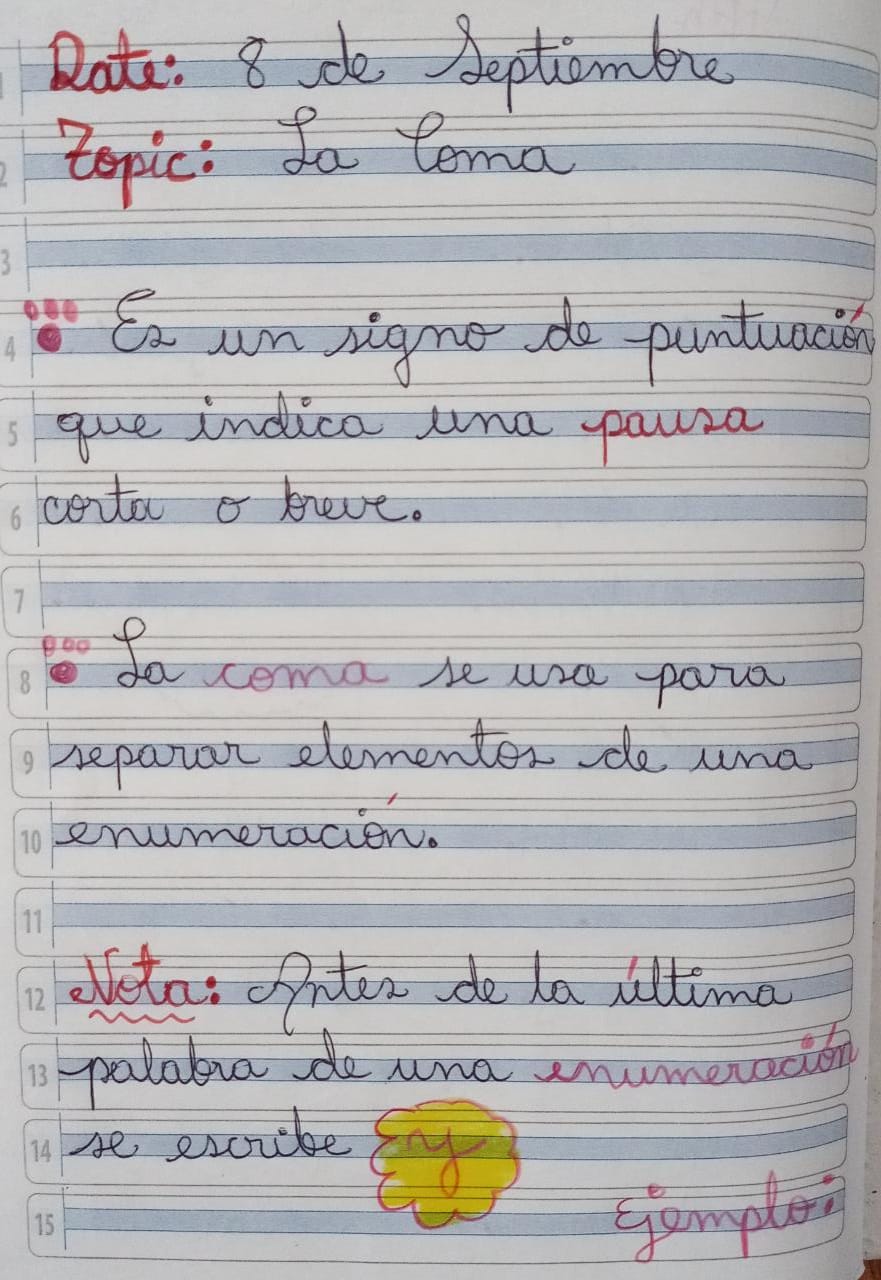 Date: 8 de Septiembre
Topic: La Coma
Es un signo de puntuación
que indica una pausa
corta o breve.
La coma se usa para
separar elementos de una
enumeración.
Nota: Antes de la última
palabra de una enumeración
se escribe y
Ejemplo: